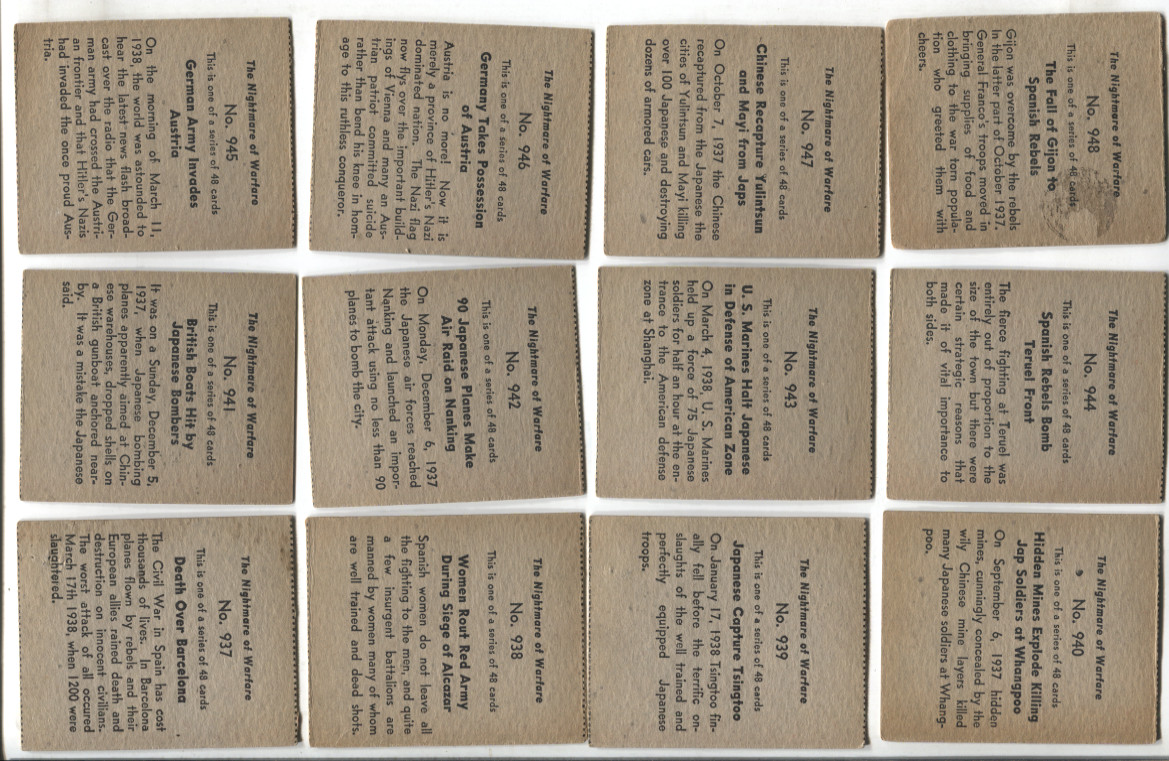 The Nightmare of Warfare
No. 948
This is one of a series of 48 cards
The Fall of Gijon to
Spanish Rebels
Gijon was overcome by the rebels
in the latter part of October 1937.
General Franco's troops moved in
bringing supplies of food and
clothing to the war torn popula-
tion who greeted them with
cheers.
The Nightmare of Warfare
No. 944
This is one of a series of 48 cards
Spanish Rebels Bomb
Teruel Front
The fierce fighting at Teruel was
entirely out of proportion to the
size of the town but there were
certain strategic reasons that
made it of vital importance to
both sides.
The Nightmare of Warfare
No. 940
This is one of a series of 48 cards
Hidden Mines Explode Killing
Jap Soldiers at Whangpoo
On September 6, 1937 hidden
mines, cunningly concealed by the
wily Chinese mine layers killed
many Japanese soldiers at Whang-
poo.
The Nightmare of Warfare
No. 947
This is one of a series of 48 cards
Chinese Recapture Yulintsun
and Mayi from Japs
On October 7, 1937 the Chinese
recaptured from the Japanese the
cities of Yulintsun and Mayi killing
over 100 Japanese and destroying
dozens of armored cars.
The Nightmare of Warfare
No. 943
This is one of a series of 48 cards
U. S. Marines Halt Japanese
in Defense of American Zone
On March 4, 1938, U. S. Marines
held up a force of 75 Japanese
soldiers for half an hour at the en-
trance to the American defense
zone at Shanghai.
The Nightmare of Warfare
No. 939
This is one of a series of 48 cards
Japanese Capture Tsingtoo
On January 17, 1938 Tsingtoo fin-
ally fell before the terrific on-
slaughts of the well trained and
perfectly equipped Japanese
troops.
The Nightmare of Warfare
No. 946
This is one of a series of 48 cards
Germany Takes Possession
of Austria
Austria is no more! Now it is
merely a province of Hitler's Nazi
dominated nation. The Nazi flag
now flys over the important build-
ings of Vienna and many an Aus-
trian patriot committed suicide
rather than bend his knee in hom-
age to this ruthless conqueror.
The Nightmare of Warfare
No. 942
This is one of a series of 48 cards
90 Japanese Planes Make
Air Raid on Nanking
On Monday, December 6, 1937
the Japanese air forces reached
Nanking and launched an impor-
tant attack using no less than 90
planes to bomb the city.
The Nightmare of Warfare
No. 938
This is one of a series of 48 cards
Women Rout Red Army
During Siege of Alcazar
Spanish women do not leave all
the fighting to the men, and quite
a few insurgent battalions are
manned by women many of whom
are well trained and dead shots.
The Nightmare of Warfare
No. 945
This is one of a series of 48 cards
German Army Invades
Austria
On the morning of March 11,
1938, the world was astounded to
hear the latest news flash broad-
cast over the radio that the Ger-
man army had crossed the Austri-
an frontier and that Hitler's Nazis
had invaded the once proud Aus-
tria.
The Nightmare of Warfare
No. 941
This is one of a series of 48 cards
British Boats Hit by
Japanese Bombers
It was on a Sunday, December 5,
1937, when Japanese bombing
planes apparently aimed at Chin-
ese warehouses, dropped shells on
a British gunboat anchored near-
by. It was a mistake the Japanese
said.
The Nightmare of Warfare
No. 937
This is one of a series of 48 cards
Death Over Barcelona
The Civil War in Spain has cost
thousands of lives. In Barcelona
planes flown by rebels and their
European allies rained death and
destruction on innocent civilians.
The worst attack of all occured
March 17th 1938, when 1200 were
slaughtered.